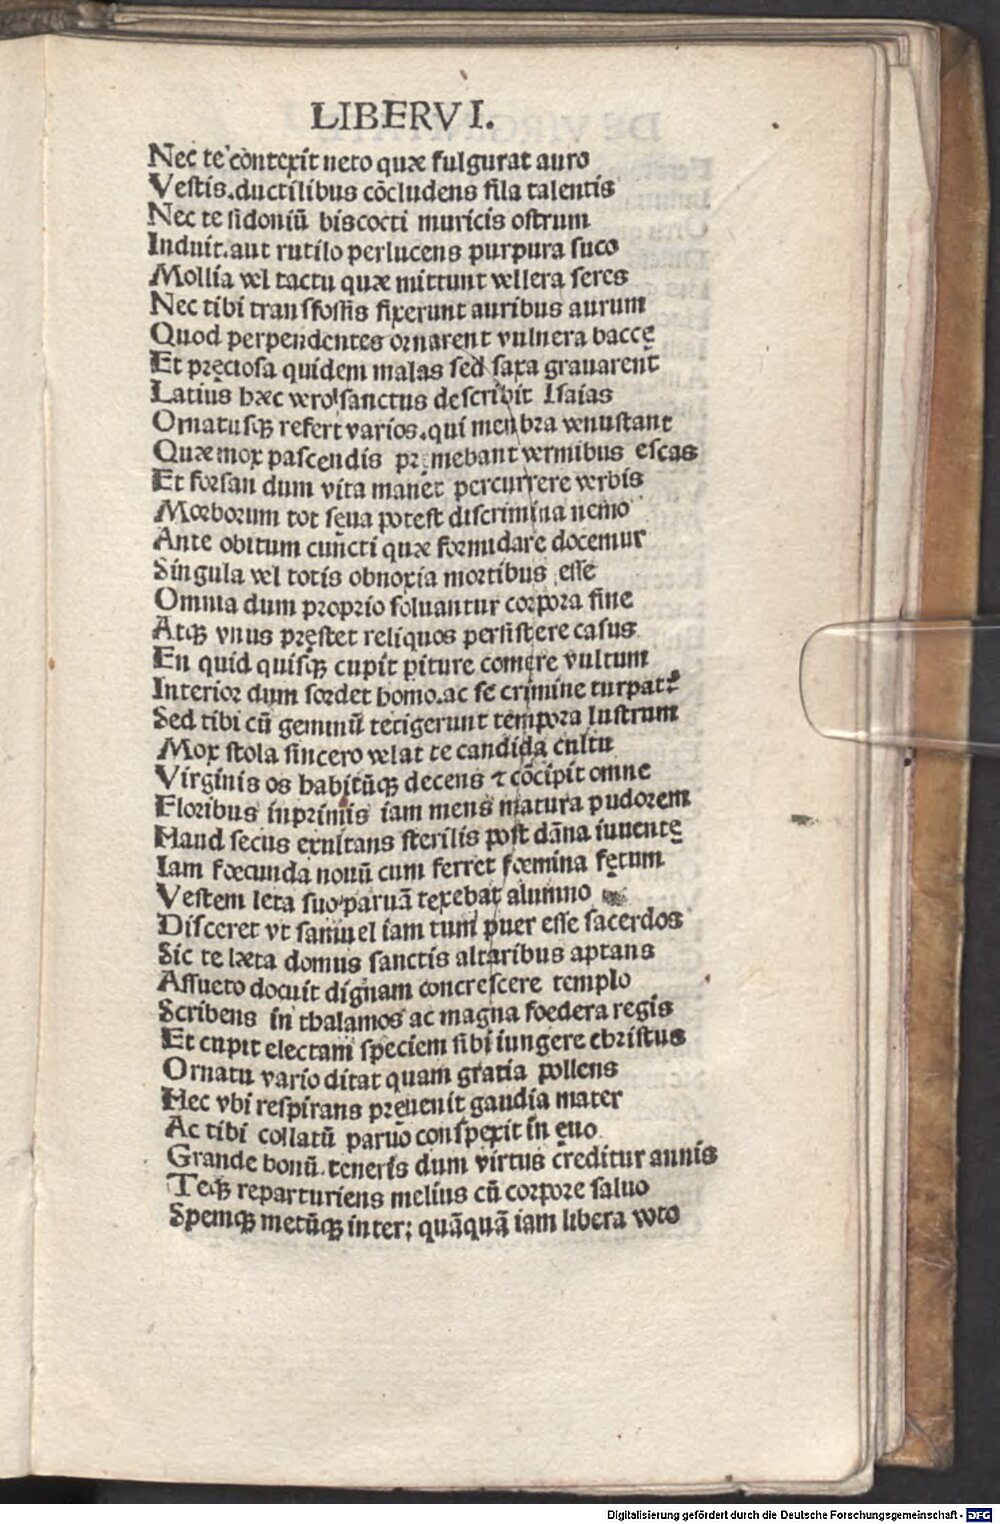 LIBER VI.
Nec te contexit neto quæ fulgurat auro
Vestis.ductilibus cōcludens fila talentis
Nec te sidoniū biscocti muricis ostrum
Induit.aut rutilo perlucens purpura suco
Mollia vel tactu quæ mittunt vellera seres
Nec tibi transfossis fixerunt auribus aurum
Quod perpendentes ornarent vulnera baccę
Et pręciosa quidem malas sed saxa grauarent
Latius hæc vero sanctus describit Isaias
Ornatusqꝫ refert varios.qui menbra venustant
Quæ mox pascendis premebant vermibus escas
Et forsan dum vita manet percurrere verbis
Morborum tot seua potest discrimina nemo
Ante obitum cuncti quæ formidare docemur
Singula vel totis obnoxia mortibus esse
Omnia dum proprio soluantur corpora fine
Atqꝫ vnus pręstet reliquos persistere casus
En quid quisqꝫ cupit piture comere vultum
Interior dum sordet homo.ac se crimine turpat?
Sed tibi cū geminū tetigerunt tempora lustrum
Mox stola sincero velat te candida cultu
Virginis os habitūqꝫ decens ⁊ cōcipit omne
Floribus inprimis iam mens matura pudorem
Haud secus exultans sterilis post dāna iuuentę
Iam fœcunda nouū cum ferret fœmina fętum
Vestem leta suo paruā texebat alumno
Disceret vt samuel iam tum puer esse sacerdos
Sic te læta domus sanctis altaribus aptans
Assueto docuit dignam concrescere templo
Scribens in thalamos ac magna foedera regis
Et cupit electam speciem sibi iungere christus
Ornatu vario ditat quam gratia pollens
Hec vbi respirans preuenit gaudia mater
Ac tibi collatū paruo conspexit in ęuo
Grande bonū.teneris dum virtus creditur annis
Teqꝫ reparturiens melius cū corpore saluo
Spemqꝫ metūqꝫ inter; quāquā iam libera voto
Digitalisierung gefördert durch die Deutsche Forschungsgemeinschaft - DFG